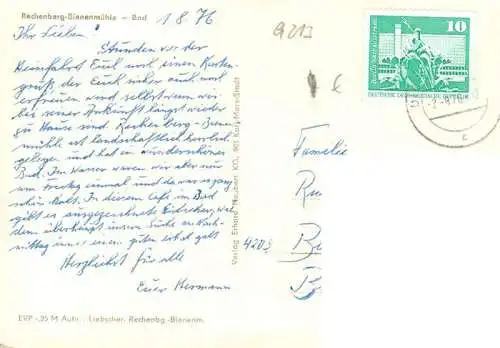 Rechenberg-Bienenmühle – Bad
1 8 76
Ihr Lieben!
Stunden vor der
Heimfahrt Euch noch einen Karten-
gruß, der Euch sicher auch noch
erfreuen wird, selbst wenn wir
bei seiner Ankunft längst wieder
zu Hause sind. Rechenberg-Bienen-
mühle ist landschaftlich herrlich
gelegen und hat ein wunderschönes
Bad. Im Wasser waren wir aber nur
am Freitag einmal und da war es ganz
schön kalt. In dessen Café im Bad
gibt es ausgezeichnete Eisbecher, wie
dem überhaupt unsere Suche am Nach-
mittag immer einen guten
Herzlichst für alle
Euer Hermann
EVP -,25 M Aufn.: Liebscher, Rechenbg.-Bienenm.
Verlag Erhard Neubert KG, 901 Karl-Marx-Stadt
9213
10
DEUTSCHE DEMOKRATISCHE REPUBLIK
c
Familie
4203